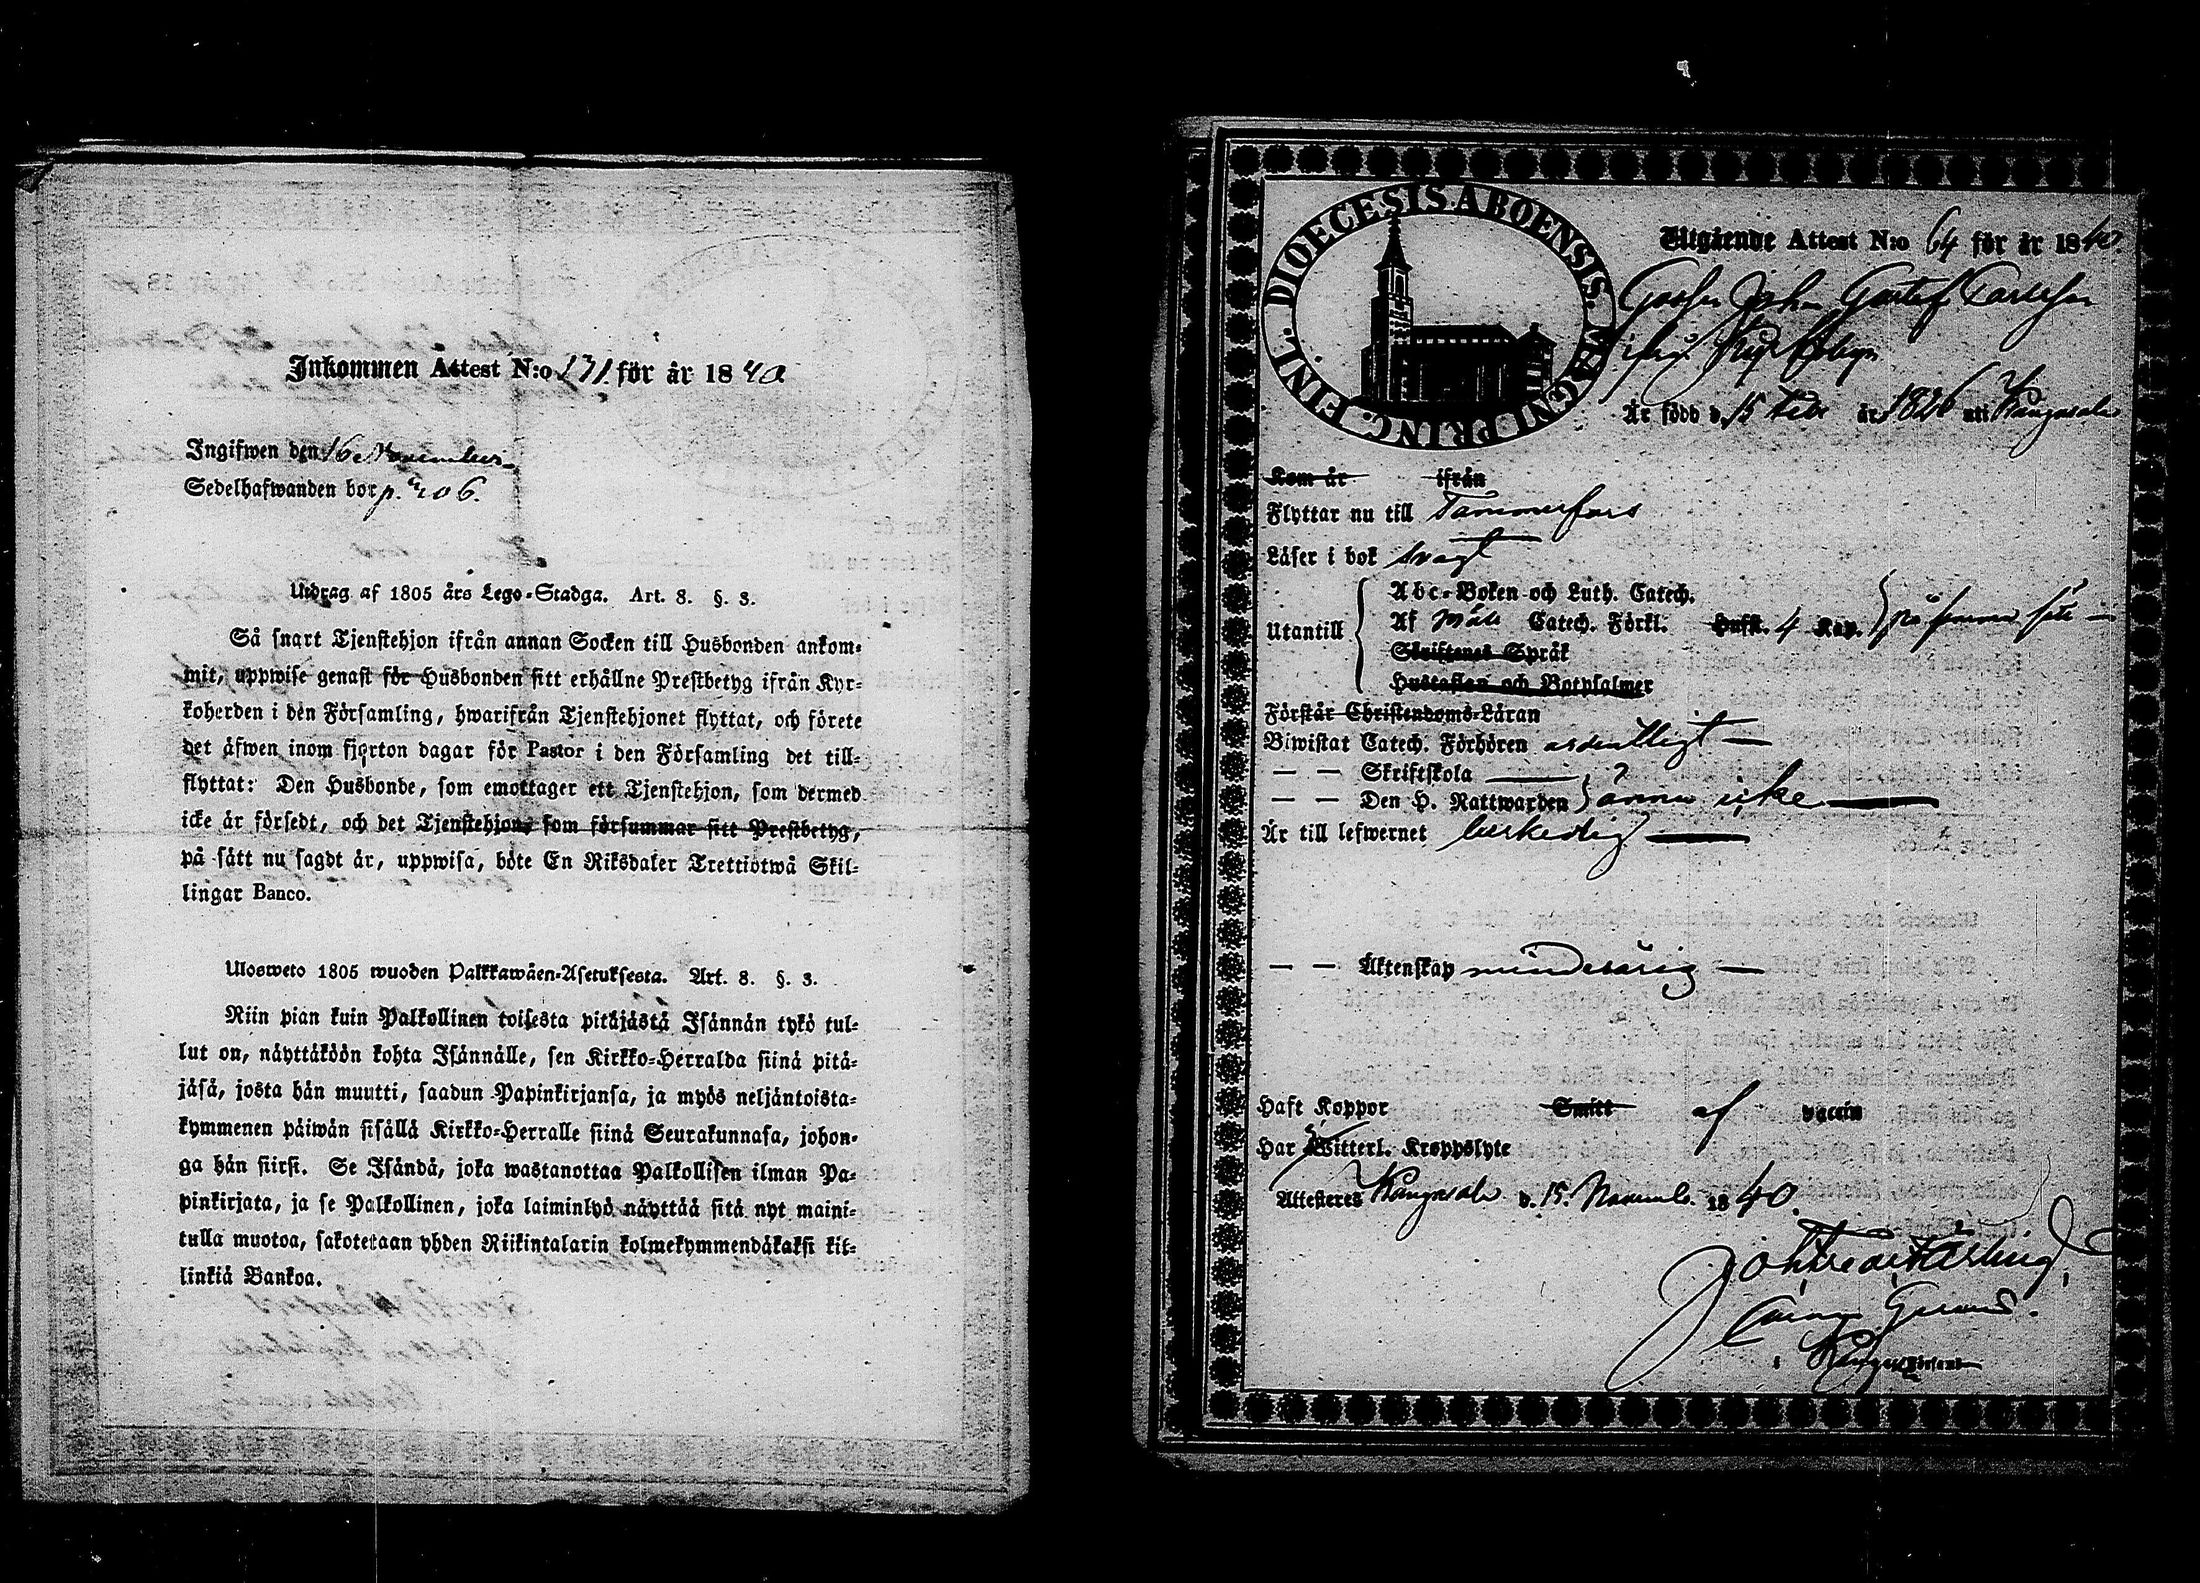 Inkommen Attest N:o 131. för år 1840
Ingifwen den 16 November
Sedelhafwanden bor p. 206.
Utdrag af 1805 års Lego-Stadga. Art. 8. §. 3.
Så snart Tjenstehjon ifrån annan Socken till Husbonden ankom-
mit, uppwise genast för Husbonden sitt erhållne Prestbetyg ifrån Kyr-
koherden i den Församling, hwarifrån Tjenstehjonet flyttat, och förete
det äfwen inom fjorton dagar för Pastor i den Församling det till-
flyttat: Den Husbonde, som emottager ett Tjenstehjon, som dermed
icke är försedt, och det Tjenstehjon, som försummar sitt Prestbetyg,
på sätt nu sagdt är, uppwisa, böte En Riksdaler Trettiotwå Skil-
lingar Banco.
Ulosweto 1805 wuoden Palkkawäen-Asetuksesta. Art. 8. §. 3.
Niin pian kuin Palkollinen toisesta pitäjästä Isännän tykö tul-
lut on, näyttäköön kohta Isännälle, sen Kirkko-Herralda siinä pitä-
jäsä, josta hän muutti, saadun Papinkirjansa, ja myös neljäntoista-
kymmenen päiwän sisällä Kirkko-Herralle siinä Seurakunnasa, johon-
ga hän siirsi. Se Isändä, joka wastanottaa Palkollisen ilman Pa-
pinkirjata, ja se Palkollinen, joka laiminlyö näyttää sitä nyt maini-
tulla muotoa, sakotetaan yhden Riikintalarin kolmekymmendäkaksi kil-
linkiä Bankoa.
DIOECESIS ABOENSIS. MAGNI PRINC. FINL.
Utgående Attest N:o 64 för år 1840
Gossen Johan Gustaf Carlsson
Kyrkobyn
Är född d. 15 Febr år 1826 uti Kangasala
Kom år ifrån
Flyttar nu till Tammerfors
Läser i bok svagt
Utantill
Abc-Boken och Luth. Catech.
Af Catech. Förkl. Hufst. 4 Kap. på samma sätt
Skriftenes Språk
Hustaflan och Botpsalmer
Förstår Christendoms-Läran
Biwistat Catech. Förhören ordentligt
— — Skriftskola
— — Den H. Nattwarden ännu icke
Är till lefwernet beskedlig
— — Äktenskap minderårig
Haft Koppor Smitt af vaccin
Har Witterl. Kroppslyte
Attesteras Kangasala d. 15. Novemb. 1840.